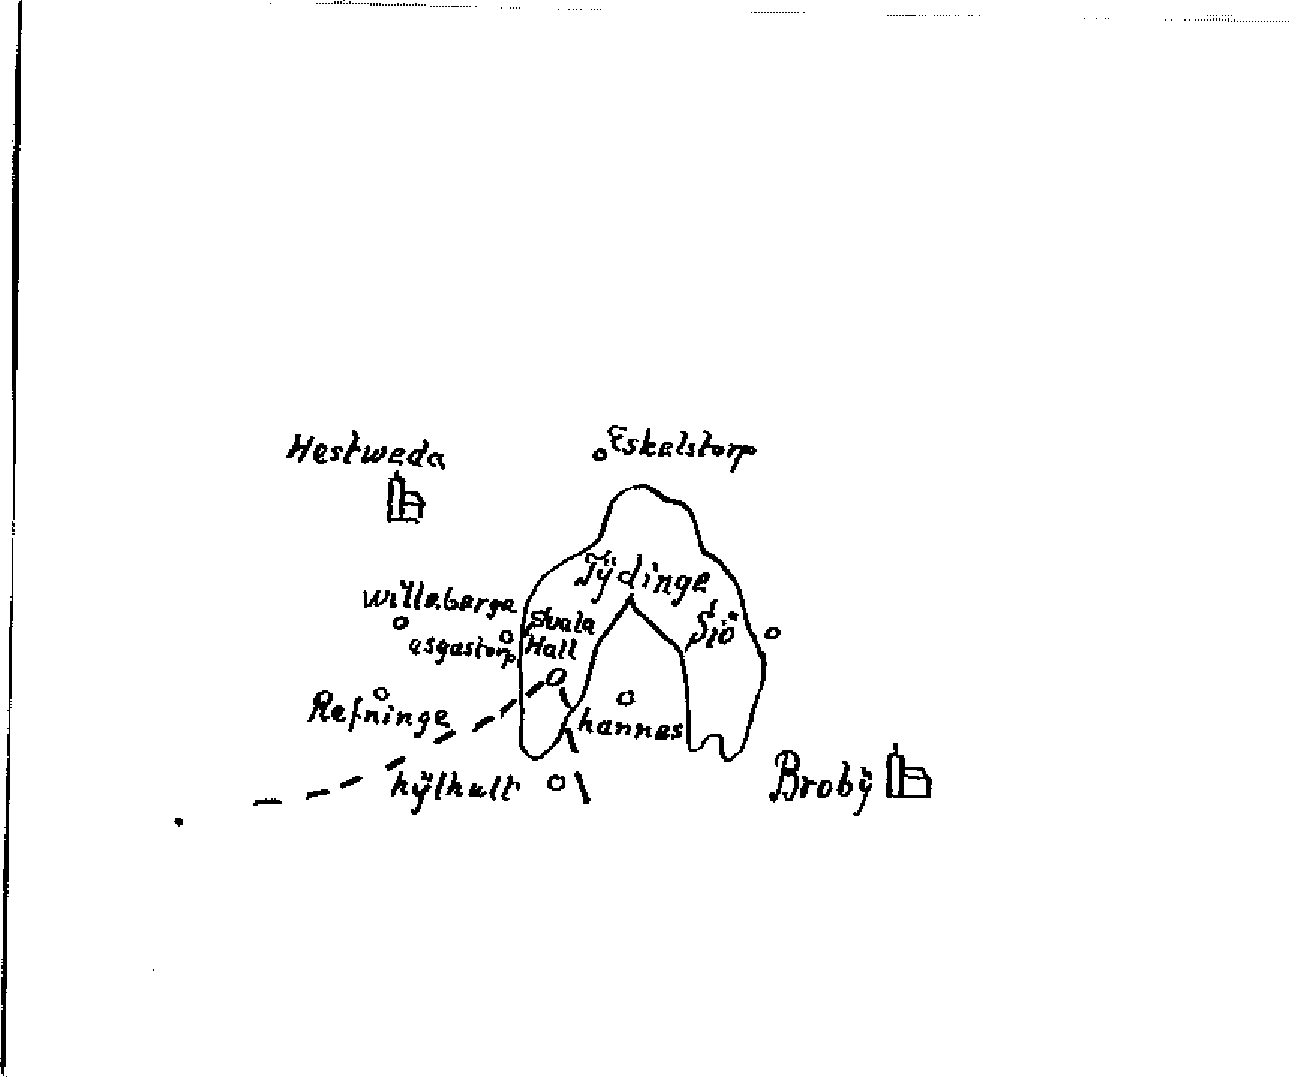 Hestweda
Eskelstorp
Tÿdinge
Siö
willeberga
Svala
Hall
asgastorp
Refninge
hannes
hÿlhult
Brobÿ